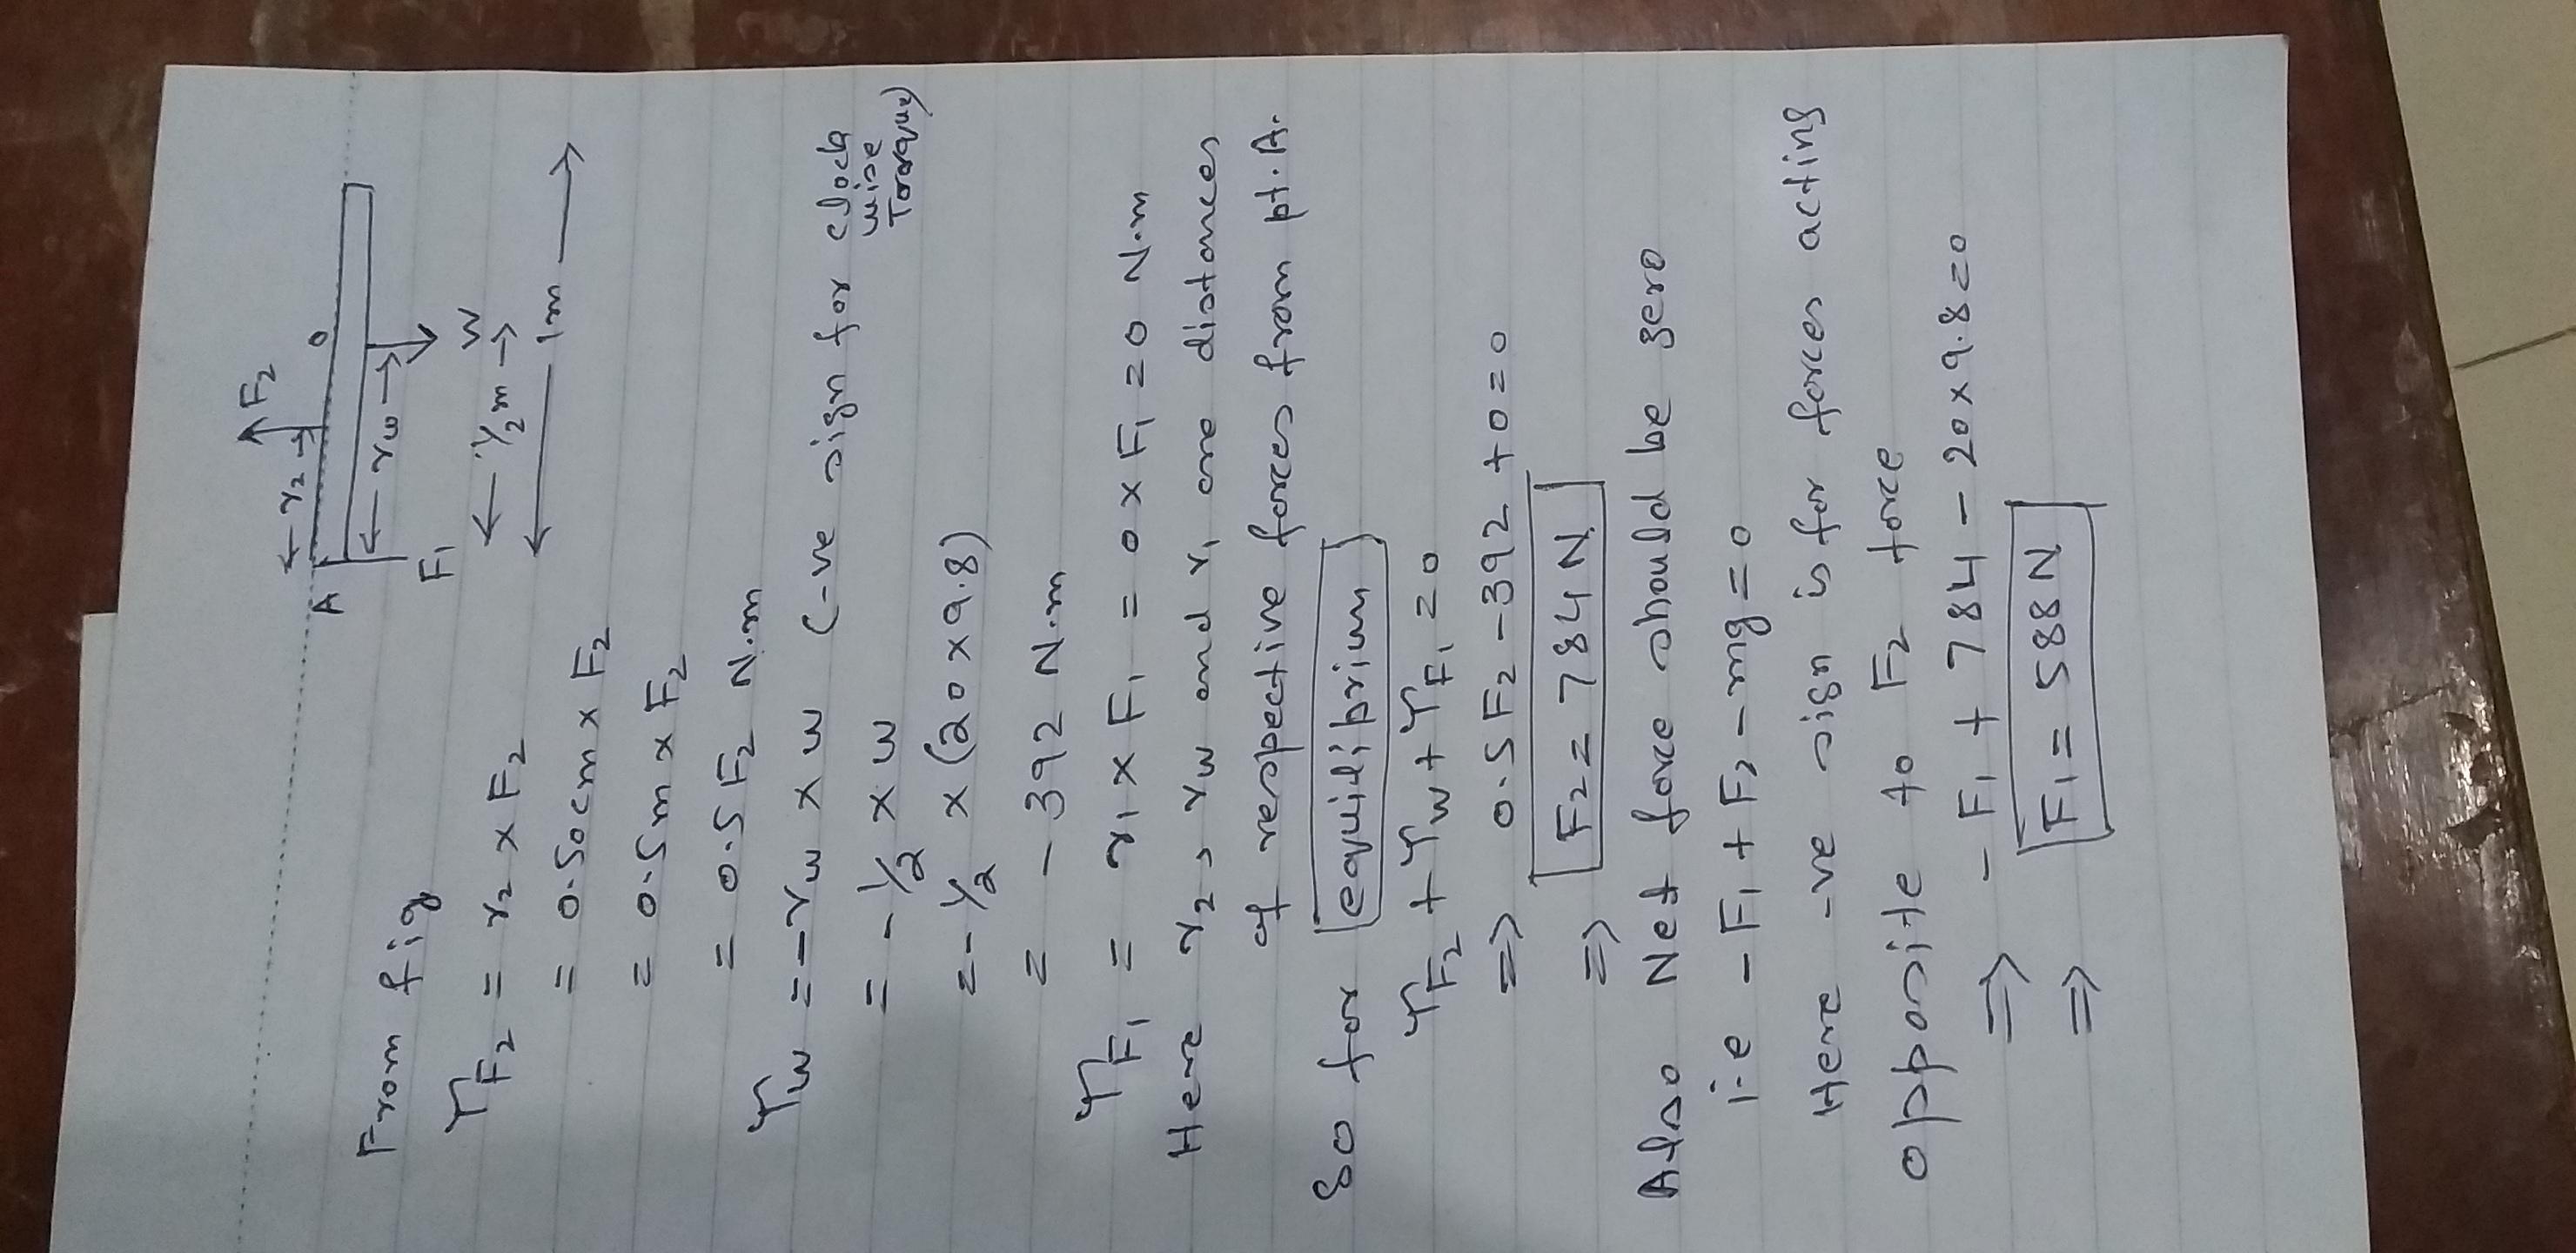 ← r₂ → ↑F₂
A O
← rw →
F₁ W
← 1/2 m →
← 1m →
From fig
τF₂ = r₂ × F₂
= 0.50cm × F₂
= 0.5m × F₂
= 0.5 F₂ N.m
τw = -rw × w (-ve sign for clock wise Torque)
= - 1/2 × w
= - 1/2 × (20 × 9.8)
= - 392 N.m
τF₁ = r₁ × F₁ = 0 × F₁ = 0 N.m
Here r₂, rw and r₁ are distances
of respective forces from pt. A.
So for equilibrium
τF₂ + τw + τF₁ = 0
⇒ 0.5 F₂ - 392 + 0 = 0
⇒ F₂ = 784 N
Also Net force should be zero
i.e - F₁ + F₂ - mg = 0
Here -ve sign is for forces acting
opposite to F₂ force
⇒ - F₁ + 784 - 20 × 9.8 = 0
⇒ F₁ = 588 N